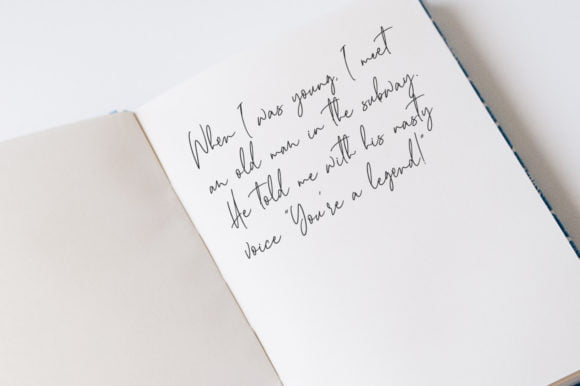 When I was young, I meet
an old man in the subway.
He told me with his rusty
voice "You're a legend!"